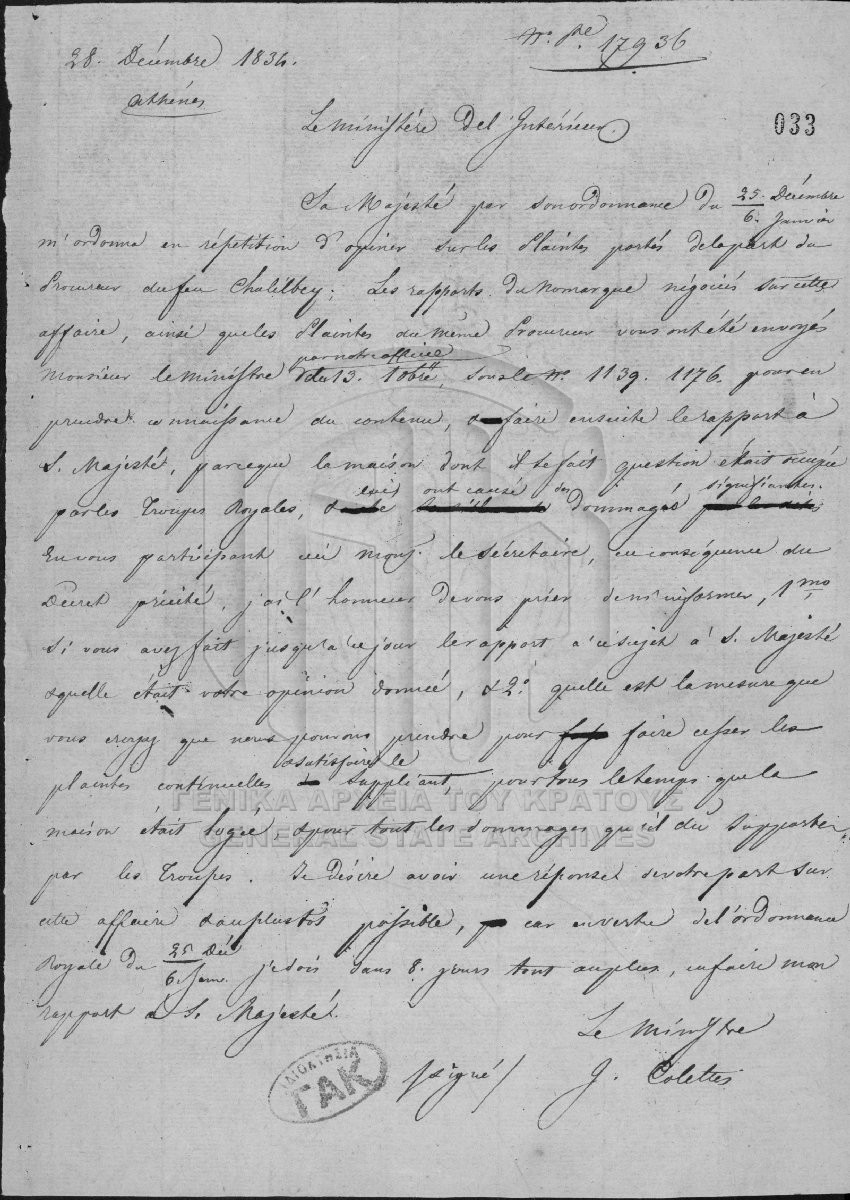 28. Décembre 1834.
Athénes
N. Pre. 17936
Le ministére Del'Intérieur.
033
Sa Majésté par sonordonnance Du 25./6. Décembre/Janvier
m'ordonna en répetition D'opiner surles Plaintes portés delapart du
Procureur dufeu Chalilbey; Les rapports Du Nomarque négociés surcette
affaire, ainsi queles Plaintes du même Procureur vous ontété envoyés
par notre office
Monsieur le Ministre du 13. 10bre, sousle No. 1139. 1176. pour en
prendre connaissance du contenu, & faire ensuite lerapport à
S. Majesté, parceque lamaison dont il se fait question était occupée
ont causé des signifiantes.
parles Troupes Royales, dommagés
En vous participant ceci Mons. le Sécrétaire, en conséquence du
Décret précité, j'ai l'honneur Devous prier dem'informer, 1mo
Si vous avez fait jusqu'a ce jour lerapport à cesujet à S. Majesté
&quelle était votre opinion donnée, & 2o. quelle est lamesure que
vous croyez que nous pouvons prendre pour faire cesser les
&satisfaire le
plaintes continuelles Suppliant, pour tous letemps quela
maison était logée &pour tout les dommages qu'il du Supporter
par les Troupes. Je désire avoir une réponse devotrepart sur
cette affaire auplustôs possible, car envertu del'ordonnance
Royale Du 25 Déc/6. Janv. jedois dans 8. jours tout auplus, enfaire mon
rapport à S. Majesté.
Le Ministre
/signé/ J. Colettis
ΙΔΙΟΚΤΗΣΙΑ
ΓΑΚ
ΓΕΝΙΚΑ ΑΡΧΕΙΑ ΤΟΥ ΚΡΑΤΟΥΣ
GENERAL STATE ARCHIVES